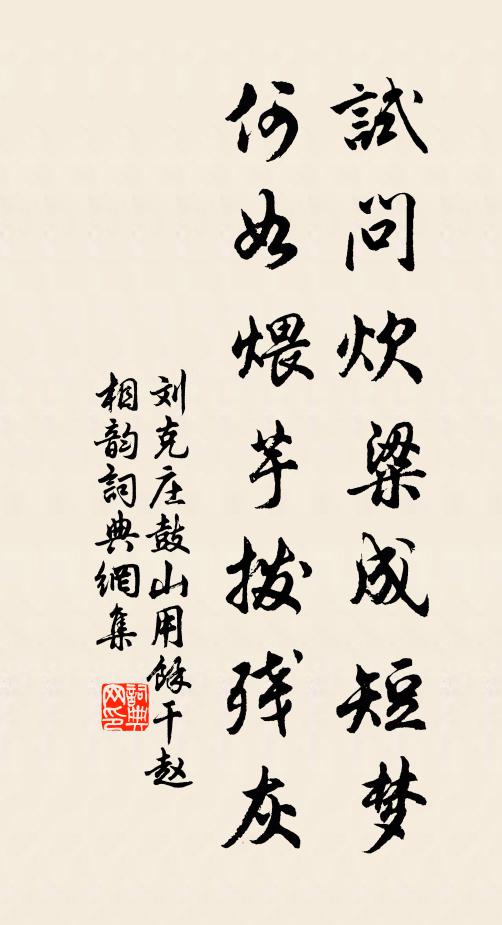 試問炊粱成短梦
何如煨芋拨残灰
刘克庄鼓山用餘干赵
相韵詞典網集
詞典
网印